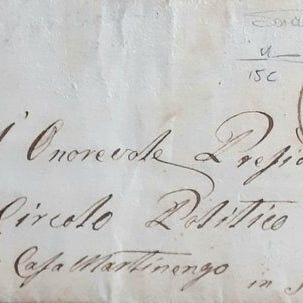 15C
l' Onorevole Presid
Circolo Politico
Casa Martinengo in